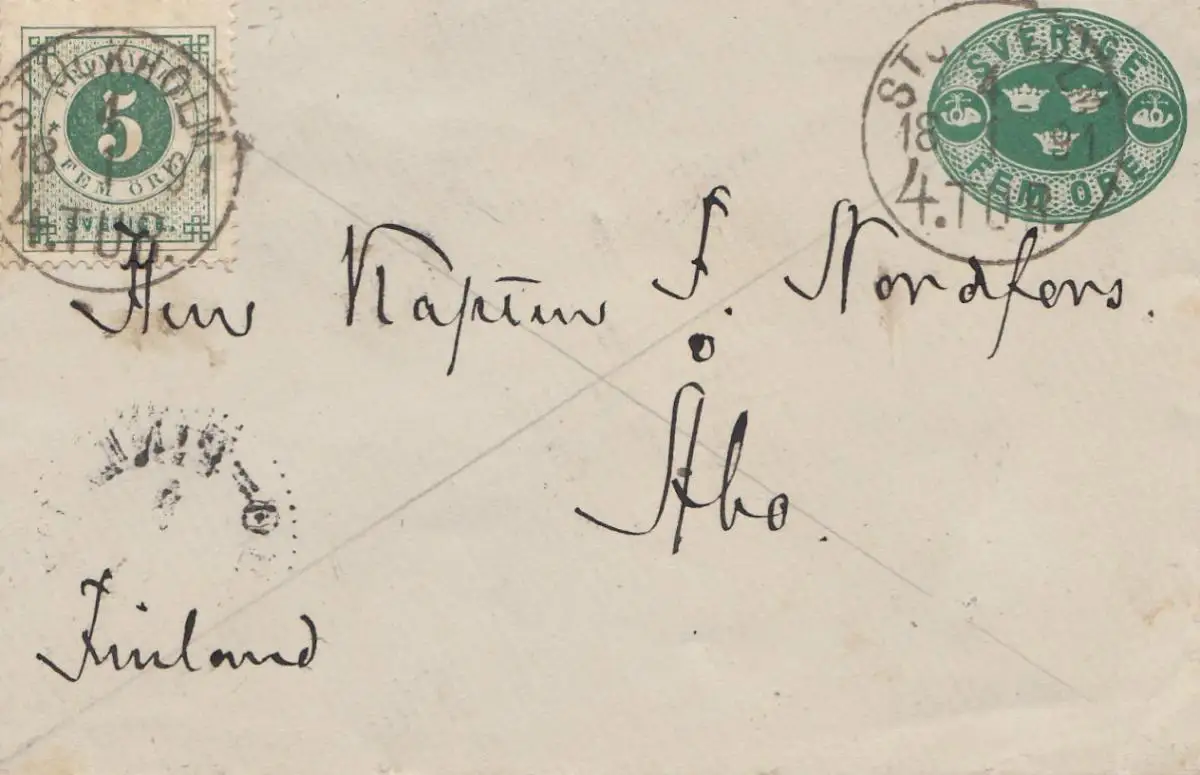 FRIMÄRKE
5
FEM ÖRE
SVERIGE.
STOCKHOLM
18 1 91
4. TUR.
SVERIGE
FEM ÖRE
STOCKHOLM
18 1 91
4. TUR.
Herr Kapten F. Nordfors.
Åbo.
Finland